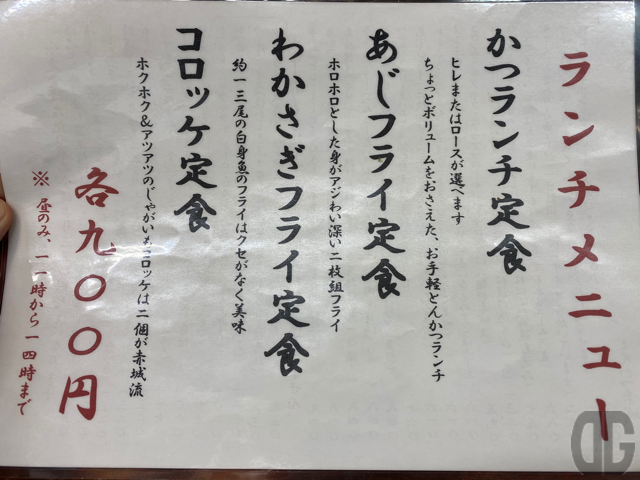 ランチメニュー
かつランチ定食
ヒレまたはロースが選べます
ちょっとボリュームをおさえた、お手軽とんかつランチ
あじフライ定食
ホロホロとした身がアジわい深い二枚組フライ
わかさぎフライ定食
約一三尾の白身魚のフライはクセがなく美味
コロッケ定食
ホクホク&アツアツのじゃがいもコロッケは二個が赤城流
各九〇〇円
※ 昼のみ、一一時から一四時まで
DG